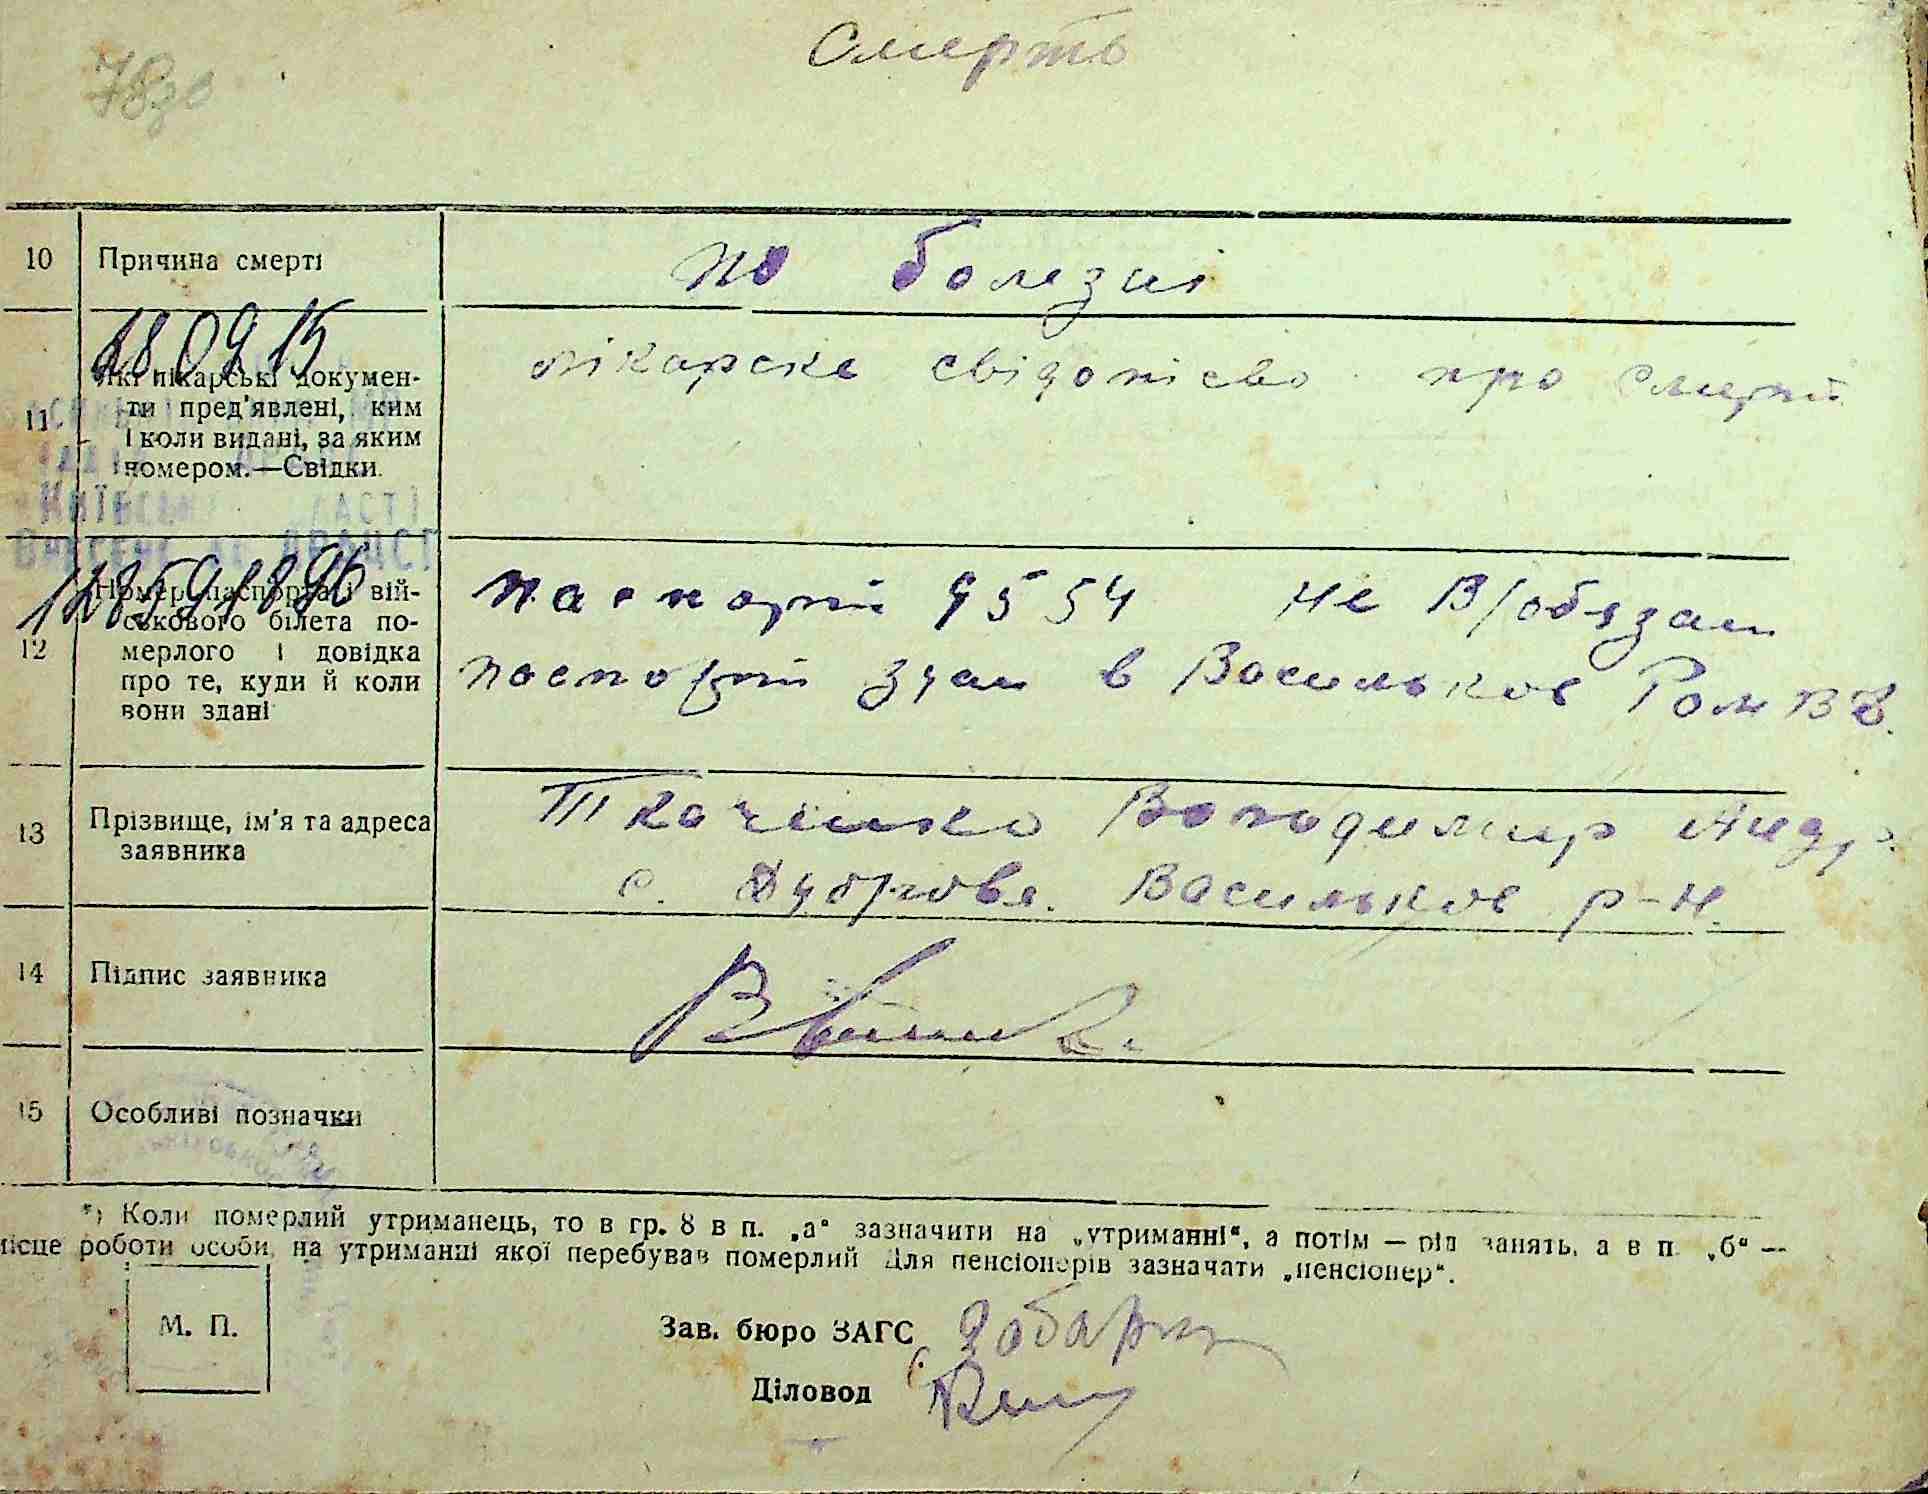 Смерть
10 Причина смерті по болезні
18 09 15
11 Які лікарські докумен-
ти пред'явлені, ким
і коли видані, за яким
номером.—Свідки.
лікарске свідотство про смерть
Київськ АСТІ
12 Номер паспорта і вій-
ськового білета по-
мерлого і довідка
про те, куди й коли
вони здані
Паспорт 9554 не в/обязан
паспорт здан в Васильков
13 Прізвище, ім'я та адреса
заявника
Ткаченко Володимир Андр.
с. Дуброва. Васильков р-н.
14 Підпис заявника
15 Особливі позначки
*) Коли померлий утриманець, то в гр. 8 в п. „а“ зазначити на „утриманні“, а потім — рід занять, а в п. „б“ —
місце роботи особи, на утриманні якої перебував померлий Для пенсіонерів зазначати „пенсіонер“.
М. П.
Зав. бюро ЗАГС
Діловод